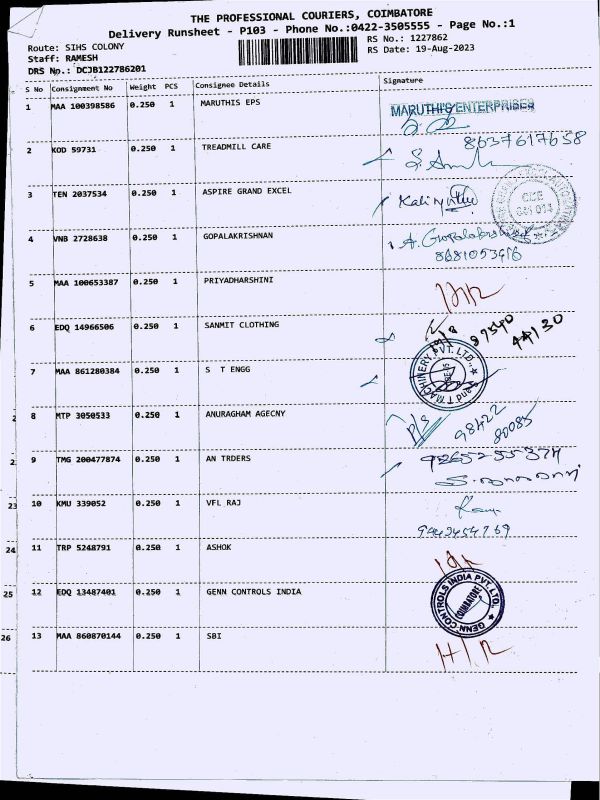 THE PROFESSIONAL COURIERS, COIMBATORE
Delivery Runsheet - P103 - Phone No.:0422-3505555 - Page No.:1
Route: SIHS COLONY
RS No.: 1227862
Staff: RAMESH
RS Date: 19-Aug-2023
DRS No.: DCJB122786201
S No Consignment No Weight PCS Consignee Details Signature
1 MAA 100398586 0.250 1 MARUTHIS EPS
MARUTHI'S ENTERPRISES
8637617658
2 KOD 59731 0.250 1 TREADMILL CARE
3 TEN 2037534 0.250 1 ASPIRE GRAND EXCEL
641 014
4 VNB 2728638 0.250 1 GOPALAKRISHNAN A. Gopalakrishnan
5 MAA 100653387 0.250 1 PRIYADHARSHINI
6 EDQ 14966506 0.250 1 SANMIT CLOTHING 97540 44130
7 MAA 861280384 0.250 1 S T ENGG
MACHINERY PVT. LTD.,
8 MTP 3050533 0.250 1 ANURAGHAM AGECNY
98422
80085
9 TMG 200477874 0.250 1 AN TRDERS
10 KMU 339052 0.250 1 VFL RAJ
23
11 TRP 5248791 0.250 1 ASHOK
24
12 EDQ 13487401 0.250 1 GENN CONTROLS INDIA
25
GENN CONTROLS INDIA PVT. LTD.,
COIMBATORE
13 MAA 860870144 0.250 1 SBI
26